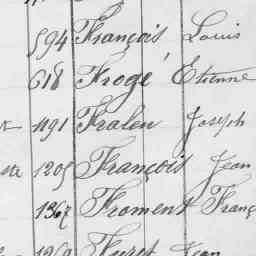 594 François Louis
618 Frogé Etienne
1191 Fraleu Joseph
1205 François Jean
1367 Froment Franç
1269 Furet Jean